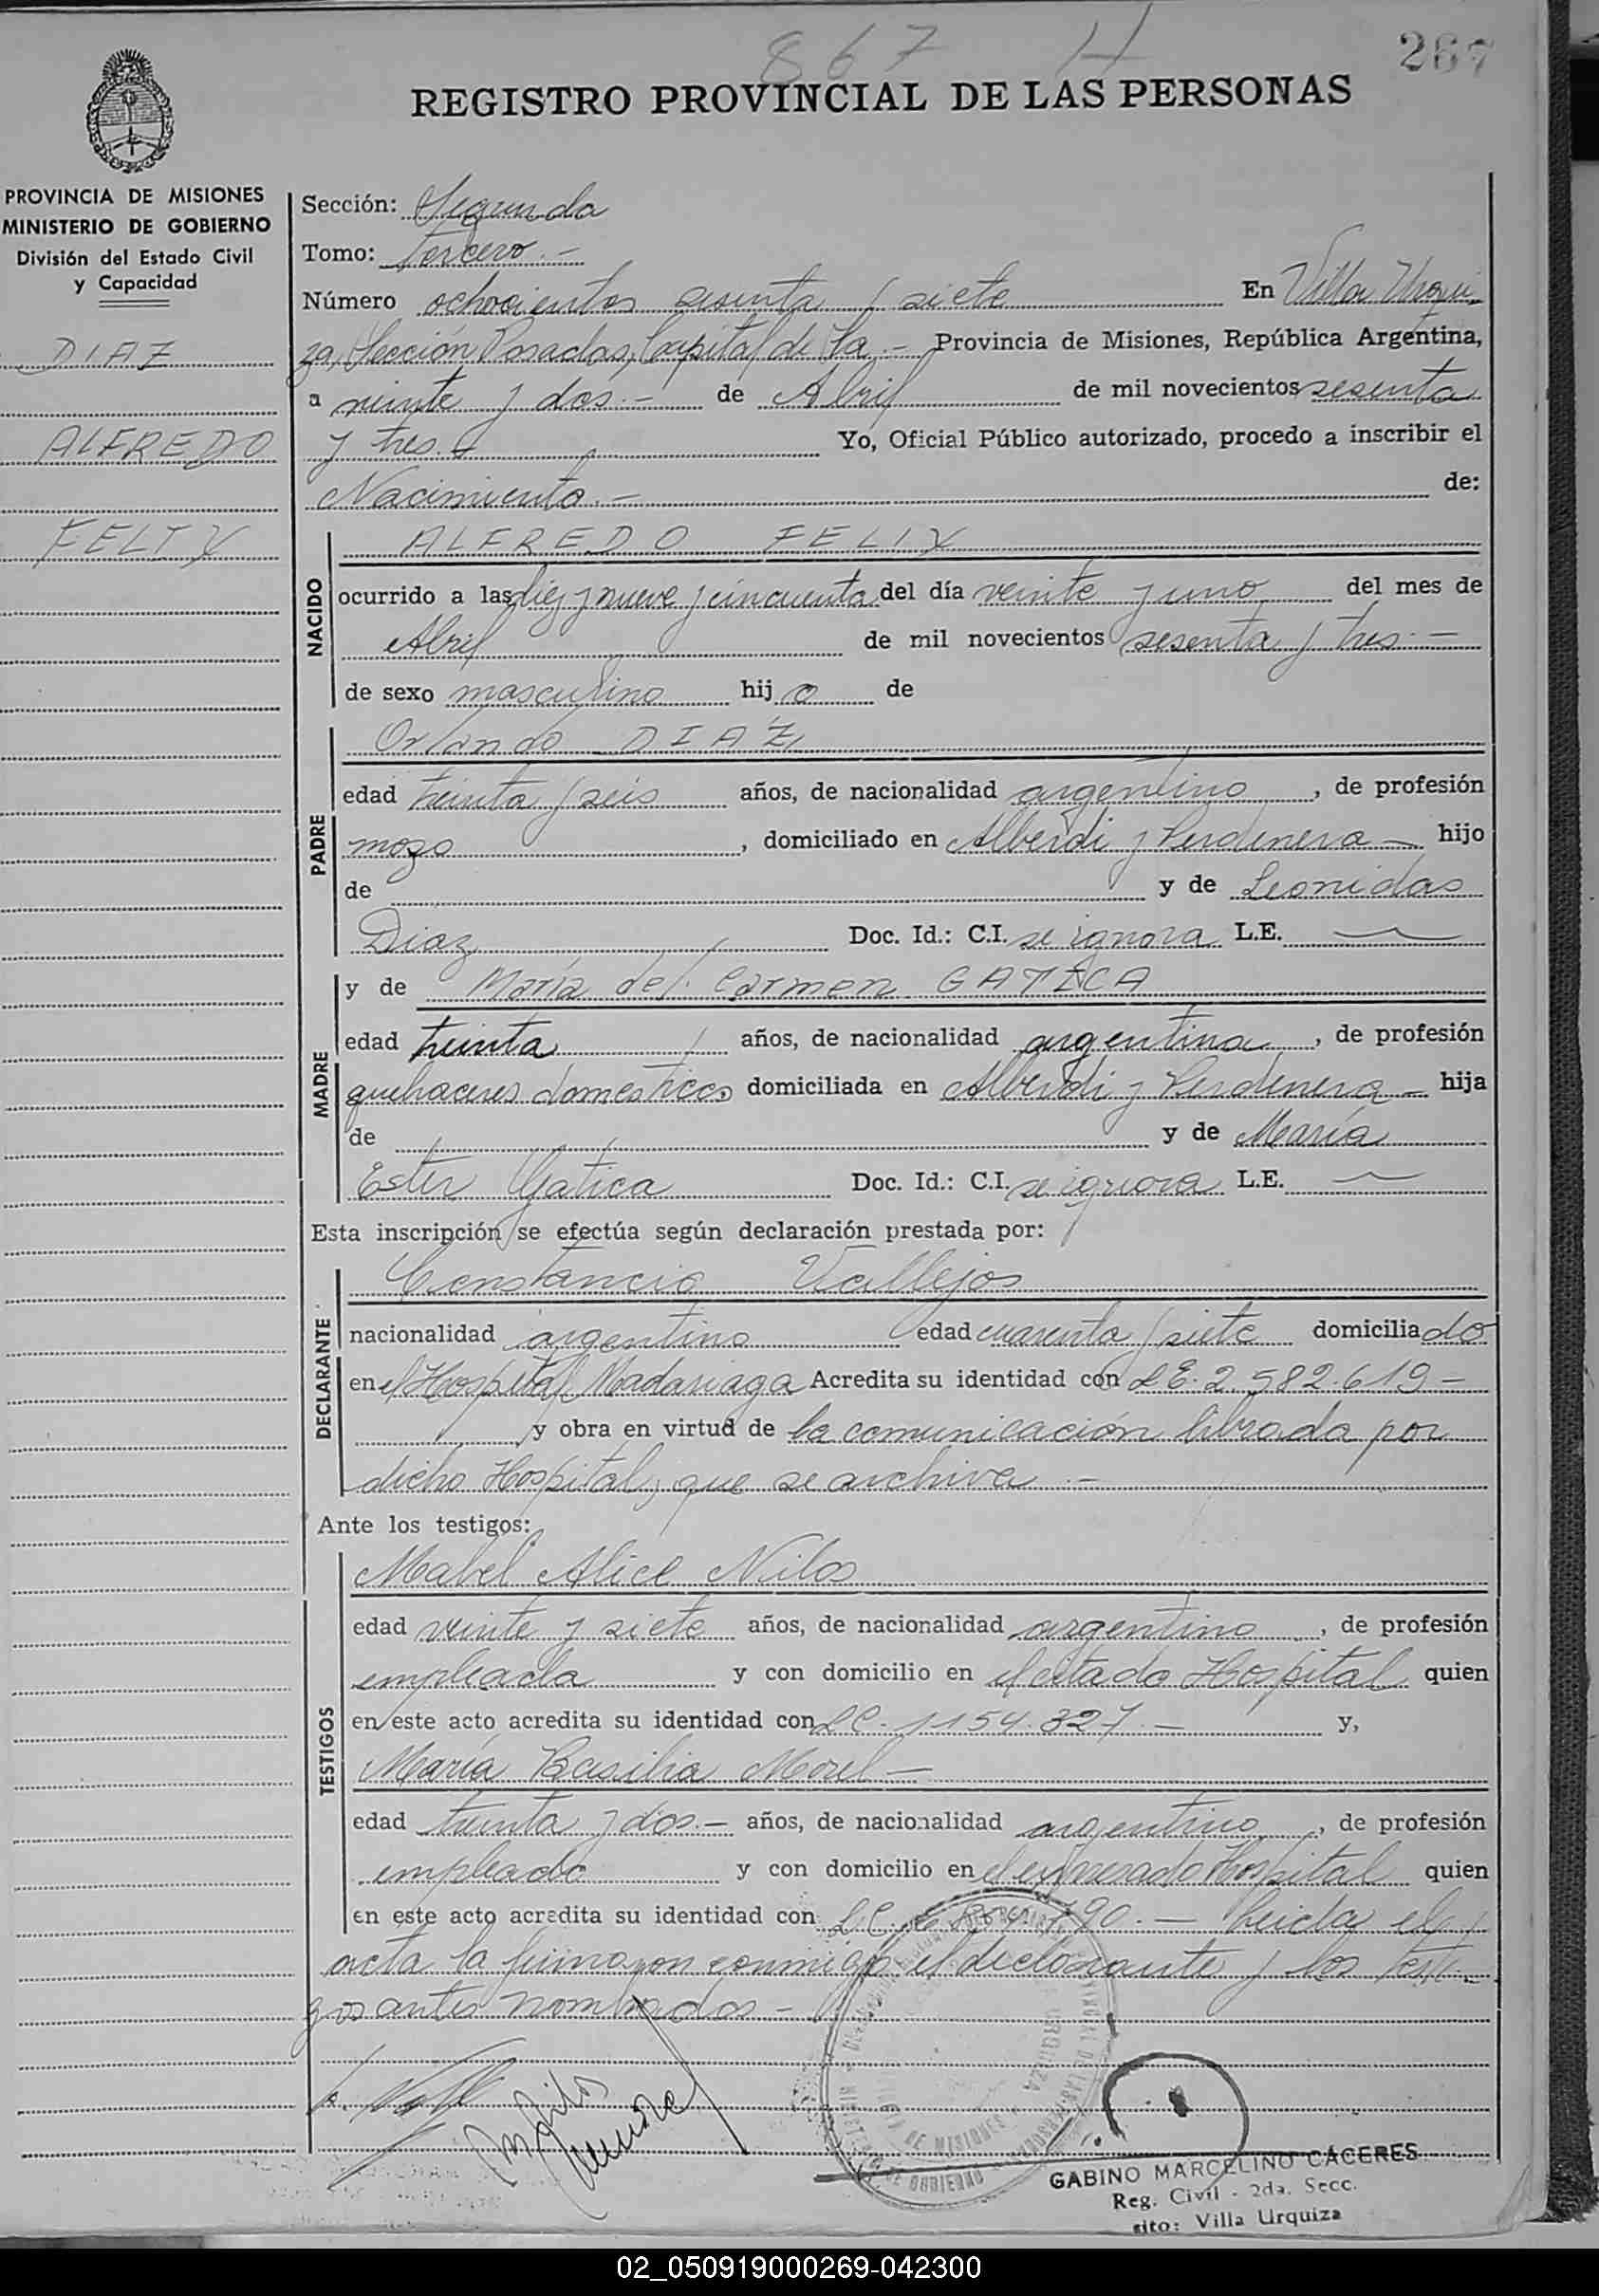 867 H
267
REGISTRO PROVINCIAL DE LAS PERSONAS
PROVINCIA DE MISIONES
MINISTERIO DE GOBIERNO
División del Estado Civil
y Capacidad
DIAZ
ALFREDO
FELIX
Sección: Segunda
Tomo: tercero.-
Número ochocientos sesenta y siete En Villa Urqui
za, Sección Posadas, Capital de la.- Provincia de Misiones, República Argentina,
a veinte y dos.- de Abril de mil novecientos sesenta
y tres. Yo, Oficial Público autorizado, procedo a inscribir el
Nacimiento.- de:
NACIDO
ALFREDO FELIX
ocurrido a las diez y nueve y cincuenta del día veinte y uno del mes de
Abril de mil novecientos sesenta y tres.-
de sexo masculino hijo de
PADRE
Orlando DIAZ
edad treinta y seis años, de nacionalidad argentino, de profesión
mozo, domiciliado en Alberdi y Perdenera - hijo
de y de Leonidas
Diaz Doc. Id.: C.I. se ignora L.E. —
MADRE
y de María del Carmen GATICA
edad treinta años, de nacionalidad argentina, de profesión
quehaceres domesticos domiciliada en Alberdi y Perdenera - hija
de y de María
Ester Gatica Doc. Id.: C.I. se ignora L.E. —
Esta inscripción se efectúa según declaración prestada por:
DECLARANTE
Constancio Vallejos
nacionalidad argentino edad cuarenta y siete domiciliado
en el Hospital Madariaga Acredita su identidad con L.E. 2.582.619-
y obra en virtud de la comunicación librada por
dicho Hospital, que se archiva.-
Ante los testigos:
TESTIGOS
Mabel Alice Nilos
edad veinte y siete años, de nacionalidad argentino, de profesión
empleada y con domicilio en el citado Hospital quien
en este acto acredita su identidad con L.C. 1154.327.- y,
María Basilia Morel-
edad treinta y dos.- años, de nacionalidad argentino, de profesión
empleado y con domicilio en el expresado Hospital quien
en este acto acredita su identidad con L.C. 190.- Leida el
acta la firmaron conmigo el declarante y los testi-
gos antes nombrados-
GABINO MARCELINO CACERES
Reg. Civil - 2da. Secc.
sito: Villa Urquiza
02_050919000269-042300